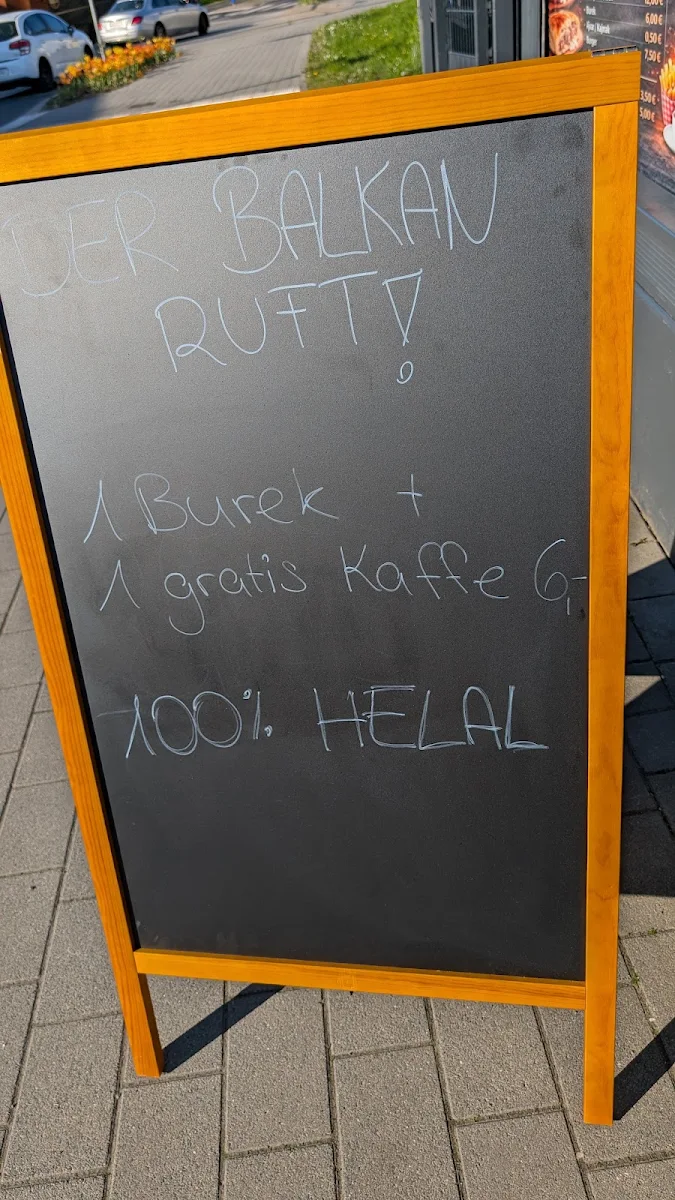 DER BALKAN
RUFT!
1 Burek +
1 gratis Kaffe 6,-
100% HELAL
12,00€
Burek
6,00€
0,50€
7,50€
3,50€
5,00€